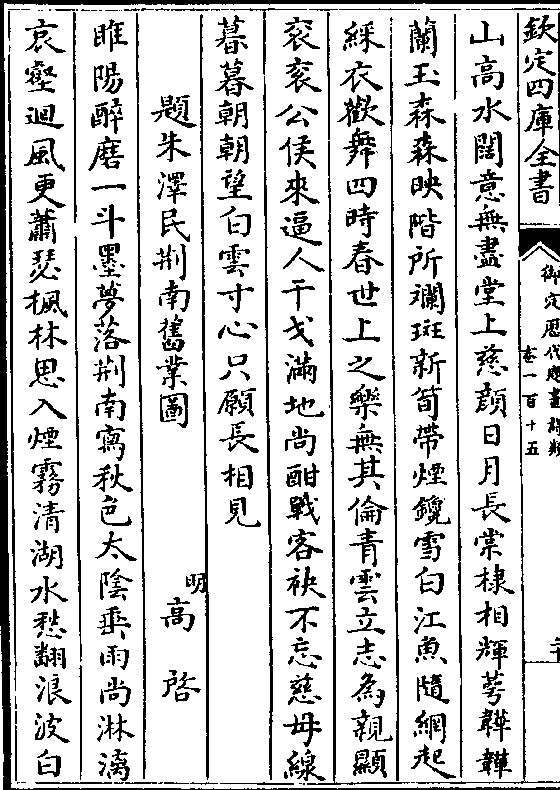 欽定四庫全書
御定歴代題畫詩類
卷一百十五
山高水闊意無盡堂上慈顔日月長棠棣相輝萼韡韡
蘭玉森森映階所斕斑新筍帶煙鑱雪白江魚隨網起
綵衣歡舞四時春世上之樂無其倫青雲立志為親顯
衮衮公侯來逼人干戈滿地尚酣戰客袂不忘慈母線
暮暮朝朝望白雲寸心只願長相見
題朱澤民荆南舊業圖
明高啓
睢陽醉磨一斗墨夢落荆南寫秋色太陰垂雨尚淋漓
哀壑迴風更蕭瑟楓林思入煙霧清湖水愁翻浪波白